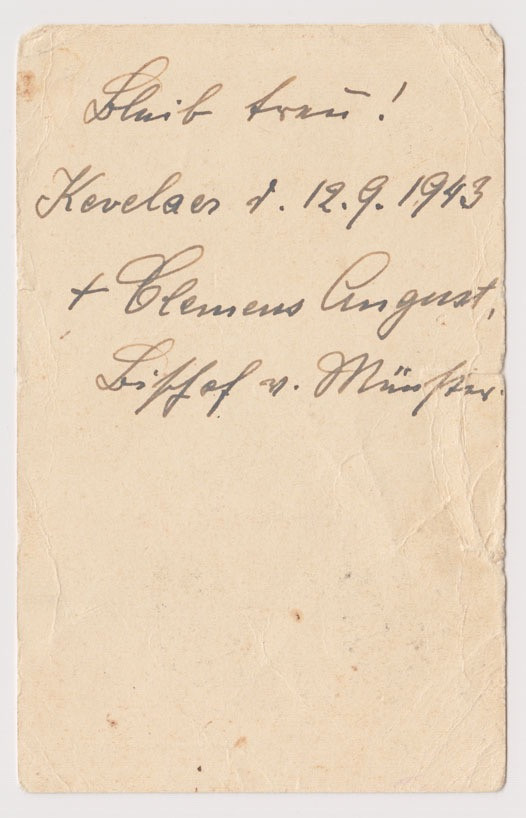 Bleib treu!
Kevelaer d. 12.9.1943
+ Clemens August,
Bischof v. Münster.